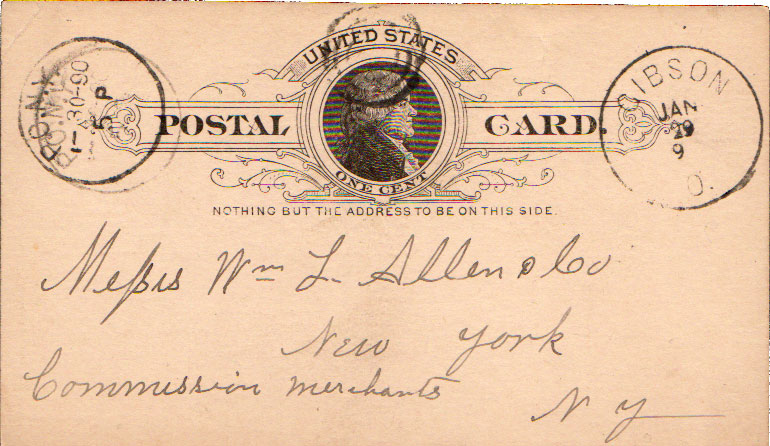 UNITED STATES
POSTAL CARD.
ONE CENT
NOTHING BUT THE ADDRESS TO BE ON THIS SIDE.
N.Y.
1-30-90
5 P
IBSON
JAN
29
9
O.
Messrs Wm L. Allen & Co
New York
Commission Merchants
N Y